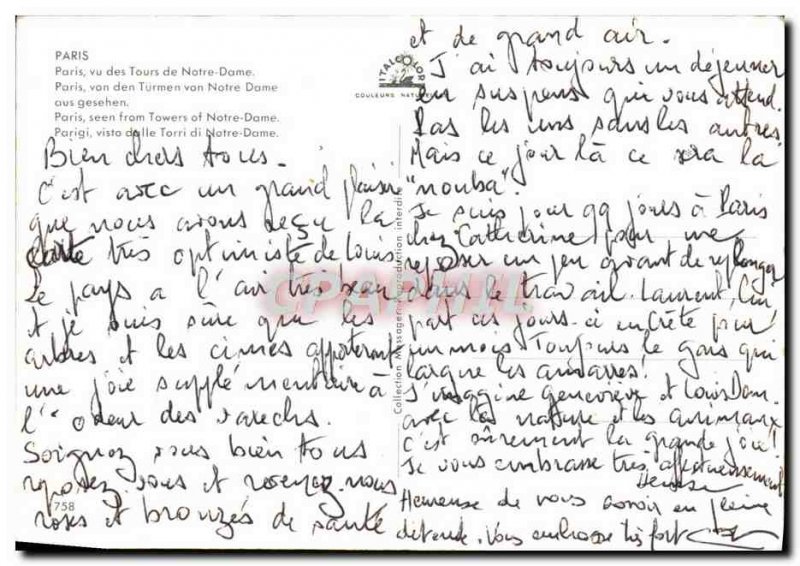 PARIS
Paris, vu des Tours de Notre-Dame.
Paris, van den Türmen van Notre Dame
aus gesehen.
Paris, seen from Towers of Notre-Dame.
Parigi, vista dalle Torri di Notre-Dame.
ITALCOLOR
COULEURS NATURELLES
Bien chers tous -
C'est avec un grand plaisir
que nous avons reçu la
carte très optimiste de Louis
Le pays a l'air très beau
et je suis sûre que les
arbres et les cimes apporteront
une joie supplémentaire à
l'odeur des varechs.
Soignez vous bien tous
reposez vous et revenez nous
758
roses et bronzés de santé
et de grand air.
J'ai toujours un déjeuner
en suspens qui vous attend.
Pas les uns sans les autres
Mais ce jour là ce sera la
"nouba".
Je suis pour qq jours à Paris
chez Catherine pour me
reposer un peu avant de replonger
dans le travail. Laurent,
part ces jours-ci en Crète pour
un mois. Toujours le gars qui
largue les amarres!
J'imagine Geneviève et Louis Dom.
avec la nature et les animaux
c'est sûrement la grande joie!
Je vous embrasse très affectueusement
Heureuse de vous savoir en pleine
détente. Vous embrasse très fort
Collection Messageries reproduction interdite
CPARAMA